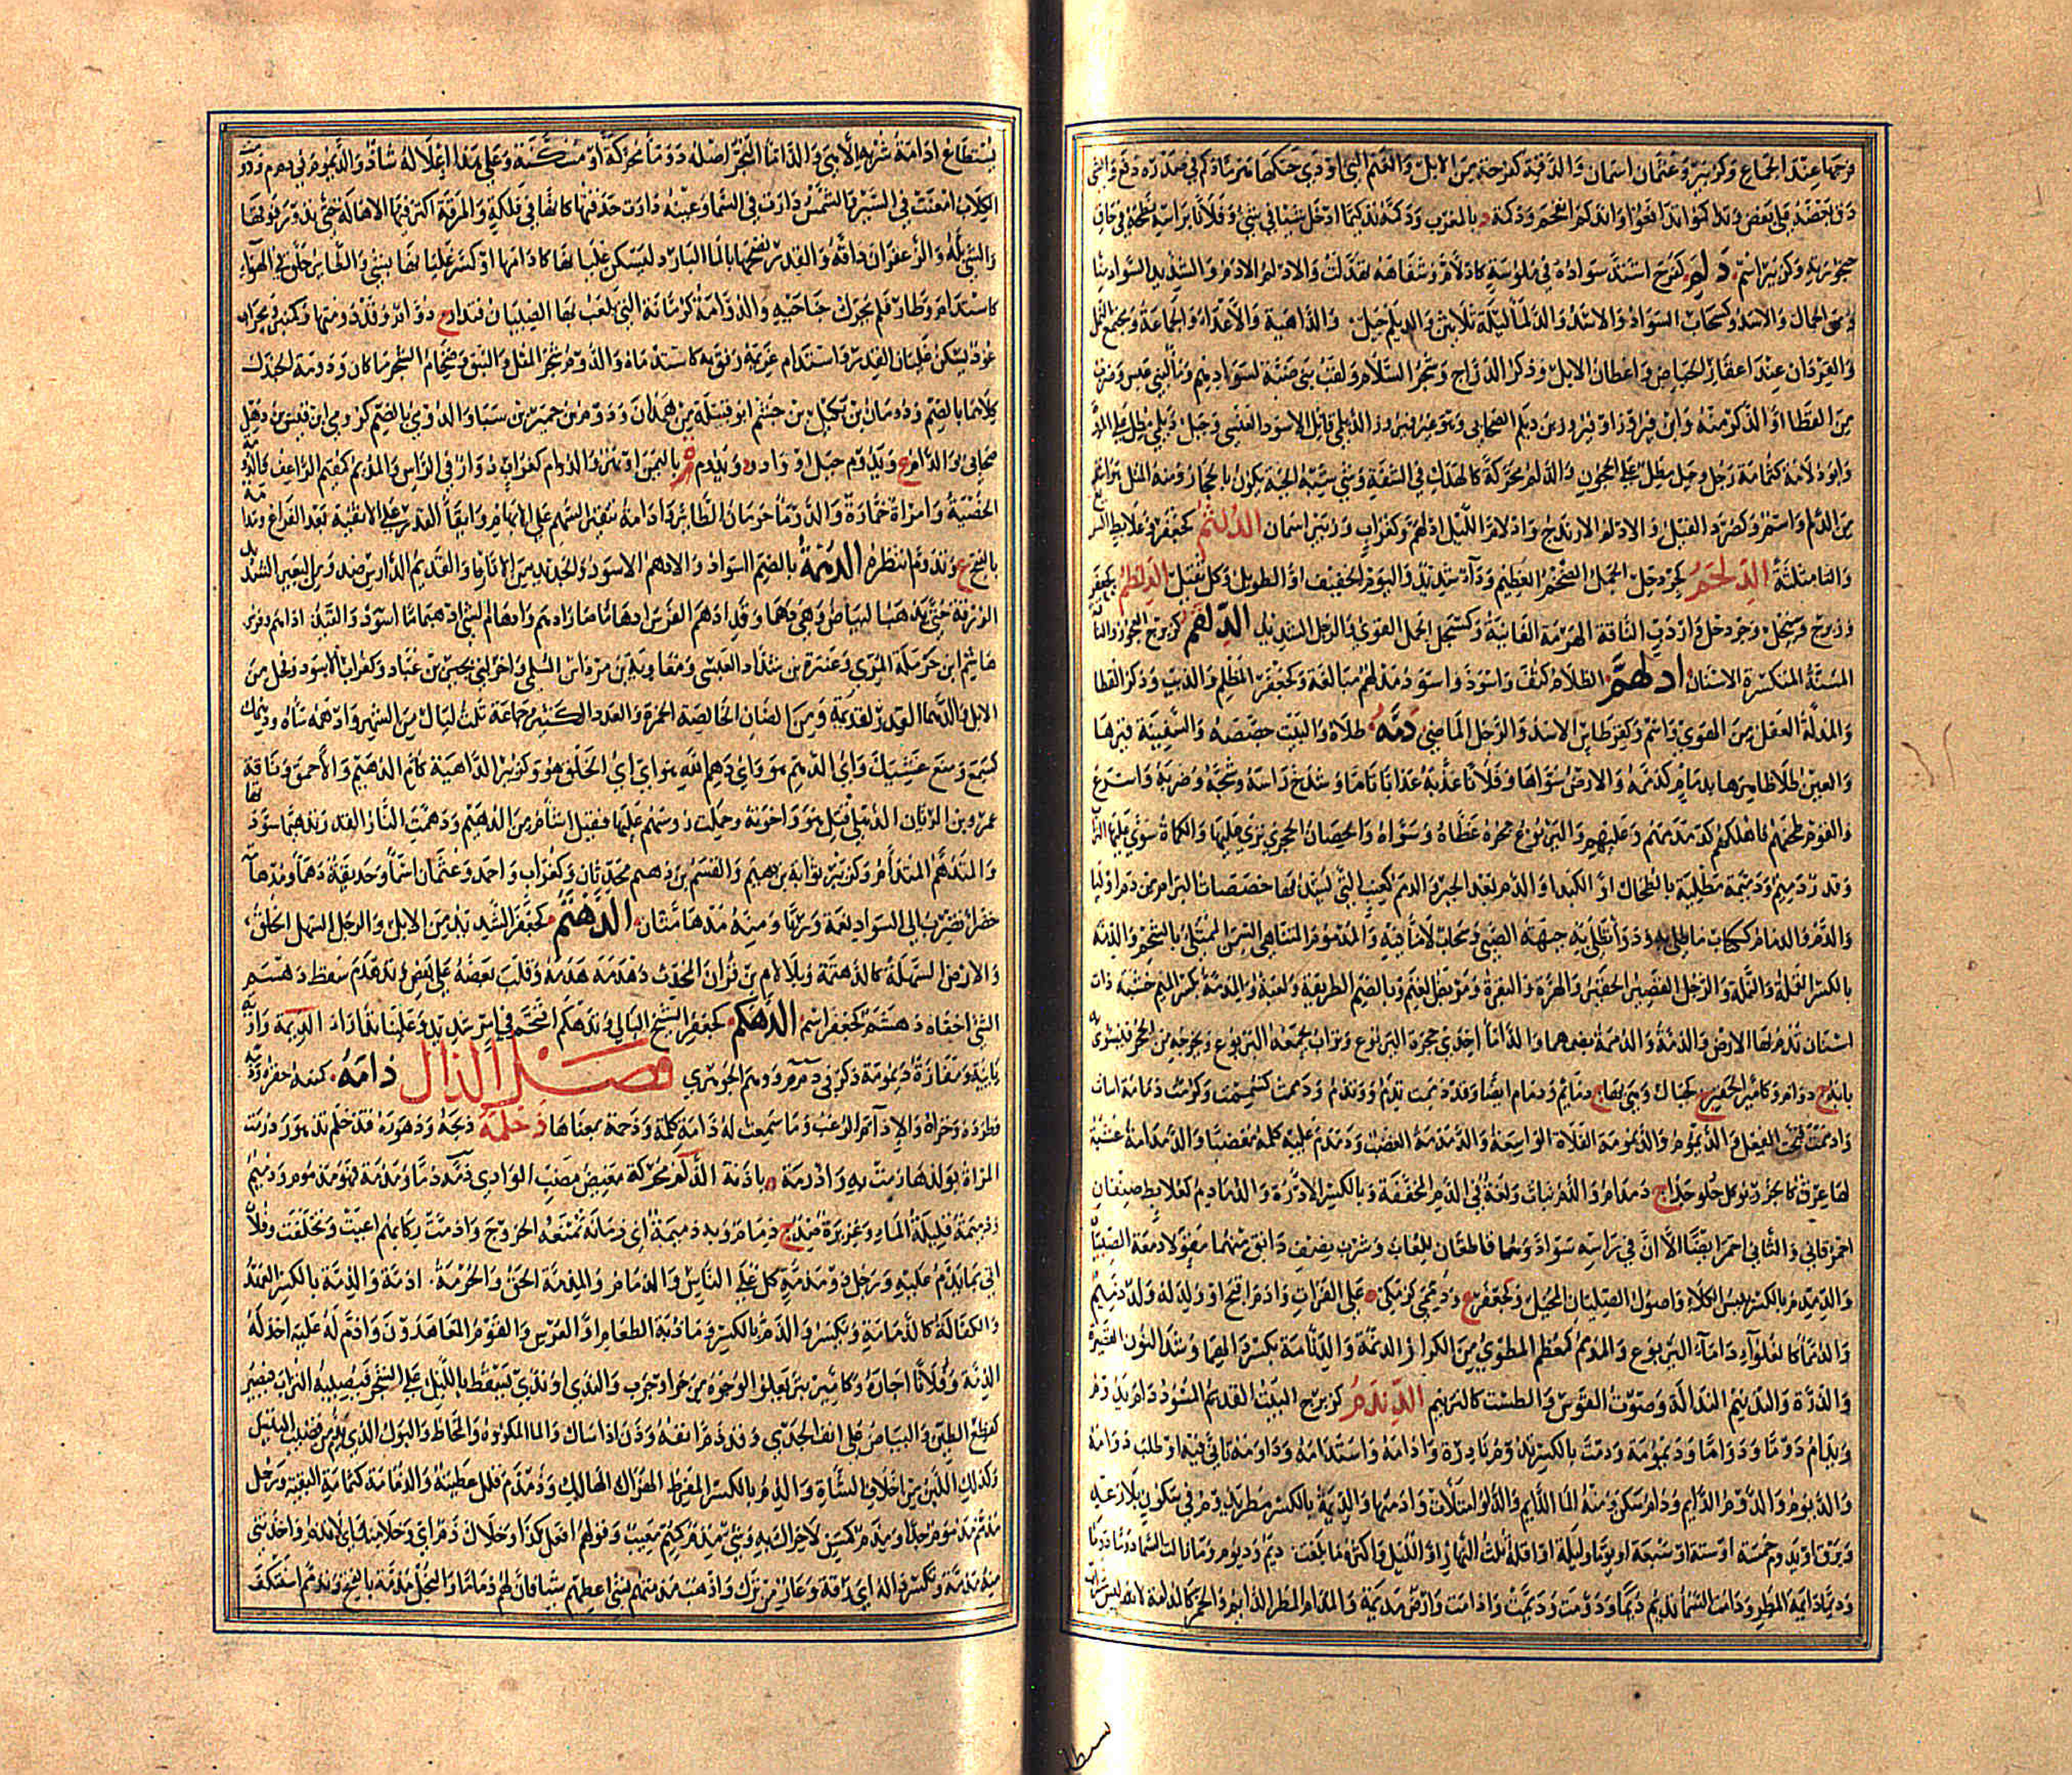 فرجها عند الجماع وكزبير وعثمان اسمان والدقمة كفرحة من الابل والغنم التي اودى حنكها
دق بعضه على بعض وتداكموا تدافعوا واندكم انقحم ودكمة بالمغرب ودكمه تدكيما ادخل شيئا في شيء
دلم كفرح اشتد سواده في ملوسة كادلام وشفاهه تهدلت والادلم الادم والشديد السواد منا
ومن الجمال والاسد وكسحاب السواد والاسود والدلماء ليلة ثلاثين والديلم جيل والداهية والاعداء والجماعة ومجتمع النمل
والقردان عند اعقار الحياض واعطان الابل وذكر الدراج وشجر السلام ولقب بني ضبة لسوادهم وماء لبني عبس
من القطا او الذكر منه وابن فيروز او فيروز بن ديلم الصحابي وهو غير فيروز الديلمي قاتل الاسود العنسي وجبل ديلمي مطل على المروة
وابو دلامة كثمامة رجل وجبل مطل على الحجون والدلم محركة كالهدل في الشفة وشيء يشبه الحية يكون بالحجاز ومنه المثل
من الدلم واسم وكصرد الفيل والادلم الارندج وادلام الليل ادلهم وكغراب وزبير اسمان الدلثم كجعفر وعلابط السريع
والثاء مثلثة الدلحم كجردحل الدلظم كجعفر
وزبرج وسبحل وجردحل واردب الناقة الهرمة الفانية وكسبحل الجمل القوي والرجل الشديد الدلقم كزبرج العجوز والناقة
المسنة المنكسرة الاسنان ادلهم الظلام كثف واسود واسود مدلهم مبالغة وكجعفر المظلم والذئب وذكر القطا
والمدله العقل من الهوى واسم وكقرطاس الاسد والرجل الماضي دمه طلاه والبيت جصصه والسفينة قيرها
والعين طلا ظاهرها بدمام كدممه والارض سواها وفلانا عذبه عذابا تاما وشدخ راسه وشجه وضربه واسرع
والقوم طحنهم فاهلكهم كدمدمهم وعليهم واليربوع جحره غطاه وسواه والحصان الحجر نزى عليها والكماة سوى عليها التراب
وقدر دميم ودميمة مطلية بالطحال او الكبد او الدم بعد الجبر
والدم والدمام ككتاب ما طلي به ودواء تطلى به جبهة الصبي وسحاب لا ماء فيه والمدموم المتناهي السمن الممتلئ بالشحم والدمة
بالكسر القملة والنملة والرجل القصير الحقير والهرة والبعرة ومربض الغنم وبالضم الطريقة ولعبة والمدمة بكسر الميم خشبة ذات
اسنان تدم بها الارض والدمة والدممة بضمهما والداماء احدى جحرة اليربوع وتراب يجمعه اليربوع ويخرجه من الجحر فيسوي
بابه ج دوام وكامير الحقير ج كجبال وهي بهاء ج دمائم ودمام ايضا وقد دممت تدم وتدم ودممت كشممت وكرمت دمامة اسأت
وادممت قبحت الفعل والديموم والديمومة الفلاة الواسعة والدمدمة الغضب ودمدم عليه كلمه مغضبا والدمدامة عشبة
لها عرق كالجزر يؤكل حلو جدا ج دمدام والدم نبات ولغة في الدم المخففة وبالكسر الادرة والدمادم كعلابط صنفان
احمر قاني والثاني احمر ايضا الا ان في راسه سوادا وهما قاطعان للعاب وشرب نصف دانق منهما مقو لادمغة الصبيان
والدمدم بالكسر يبيس الكلأ واصول الصليان المحيل وكجعفر ع ودممى كزمكى ة على الفرات وادم اقبح او ولد له ولد دميم
والدمماء كالغلواء داماء اليربوع والمدمم كمعظم المطوي من الكرار الدنمة والدنامة بكسر الدال وشد النون القصيرة
والذرة والتدنيم النذالة وصوت القوس والطست كالترنيم الدندم كزبرج النبت القديم المسود دام يدوم
ويدام دوما ودواما وديمومة ودمت بالكسر تدوم نادرة وادامه واستدامه وداومه تانى فيه او طلب دوامه
والديوم والدوم الدايم ودام سكن ومنه الماء الدايم والدلو امتلأت وادمتها والديمة بالكسر مطر يدوم في سكون بلا رعد
وبرق او يدوم خمسة او ستة او سبعة او يوما وليلة او اقله ثلث النهار او الليل واكثره ما بلغت ج ديم وديوم وما زالت السماء دوما دوما
وديما دائمة المطر ودامت السماء تديم ديما ودومت وديمت وادامت وارض مديمة والمدام المطر الدايم والخمر كالمدامة لانه ليس شراب
يستطاع ادامة شربه الا هي والداماء البحر اصله دوماء محركة او مسكنة وعلى هذا اعلاله شاذ والديموم في د م م ودومت
الكلاب امعنت في السير والشمس دارت في السماء وعينه دارت حدقتها كانها في فلكة والمرقة اكثر فيها الاهالة حتى تدور فوقها
والشيء بله والزعفران دافه والقدر نضحها بالماء البارد ليسكن غليانها كادامها او كسر غليانها بشيء والطائر حلق في الهواء
كاستدام او طار فلم يحرك جناحيه والدوامة كرمانة التي يلعب بها الصبيان فتدار ج دوام وقد دومتها وكمنبر ومحراب
عود يسكن به غليان القدر واستدام غريمه رفق به كاستدماه والدوم شجر المقل والنبق وضخام الشجر ما كان ودومة الجندل
كلاهما بالضم ودومان بن بكيل بن جشم ابو قبيلة من همدان ودوم بن حمير بن سبا والدومي بالضم كرومي ابن قيس بن ذهل
صحابي والدام ع ويدوم جبل او واد وذو يدوم ة باليمن او نهر والدوام كغراب دوار في الراس والمديم كمقيم الراعف والدومة
الخصية وامراة خمارة والدومان حومان الطائر والادامة تنقير السهم على الابهام وابقاء القدر على الاثفية بعد الفراغ وتدامة
بالفتح ع وتدوم انتظر الدهمة بالضم السواد والادهم الاسود والجديد من الاثار والقديم الدارس ضد ومن البعير الشديد
الورقة حتى يذهب البياض وهي دهماء وقد ادهم الفرس ادهماما صار ادهم وادهام الشيء ادهيماما اسود والقيد ج اداهم وفرس
هاشم ابن حرملة المري وعنترة بن شداد العبسي ومعاوية بن مرداس السلمي واخر لبني بجير بن عباد وكغراب الاسود وفحل من
الابل والدهماء القدر والقديمة ومن الضان الخالصة الحمرة والعدد الكثير وجماعة الناس وثلاث ليال من الشهر وادهمه ساءه ودهمك
كسمع ومنع غشيك واي الدهم هو واي دهم الله هو اي اي الخلق هو وكزبير الداهية كام الدهيم والاحمق وناقة
عمرو بن الزبان الذهلي قتل هو واخوته وحملت رؤسهم عليها فقيل اشأم من الدهيم ودهمت النار القدر تدهيما سودتها
والمتدهم المتدأم وكزبير ثوابة بن دهيم والقسم بن دهيم محدثان وكغراب واحمد وعثمان اسماء وحديقة دهماء ومدهامة
خضراء تضرب الى السواد نعمة وريا ومنه مدهامتان الدهثم كجعفر الشديد من الابل والرجل السهل الخلق
والارض السهلة كالدهثمة وبلا لام بن قران المحدث دهدمه هدمه وقلب بعضه على بعض وتدهدم سقط دهسم
الشيء اخفاه دهشم كجعفر اسم الدهكم كجعفر الشيخ البالي وتدهكم اقتحم في امر شديد وعلينا تدرأ الديمة واوية
يائية ومفازة ديمومة ذكر في د م م ووهم الجوهري فصل الذال ذامه كمنعه حقره وذمه
وطرده وخزاه والاذآم الرعب وما سمعت له ذأمة كلمة وذحمة بمعناها ذحلمه ذبحه ودهوره فتذحلم تدهور ذرمت
المراة بولدها رمت به واذرمة ة باذنة الذلم محركة مغيض مصب الوادي ذمه ذما ومذمة فهو مذموم وذميم
وذميمة قليلة الماء وغزيرة ضد ج ذمام وبه ذميمة اي زمانة تمنعه الخروج واذمت ركابهم اعيت وتخلفت وفلان
اتى بما يذم عليه ورجل ذو مذمة كل على الناس والذمام والمذمة الحق والحرمة ج اذمة والذمة بالكسر العهد
والكفالة كالذمامة ويكسر والذم بالكسر ومادبة الطعام او العرس والقوم المعاهدون واذم له عليه اخذ له
الذمة وفلانا اجاره وكامير بثر يعلو الوجوه من حر او جرب والندى او ندى يسقط بالليل على الشجر فيصيبه التراب فيصير
كقطع الطين والبياض على انف الجدي وقد ذم انفه وذن اذا سال والماء المكروه والمخاط والبول الذي يذم من قضيب التيس
وكذلك اللبن من اخلاف الشاة والذم بالكسر المفرط الهزال الهالك وذمذم قلل عطيته والذمامة كثمامة البقية ورجل
مذمم مذموم جدا ومذم كمسن لا حراك به وشيء مذم كمتم معيب وقولهم افعل كذا وخلاك ذم اي وخلا منك اي لا تذم واخذتني
منه مذمة وتكسر ذاله اي رقة وعار من ترك واذهب مذمتهم بشيء اعطهم شيأ فان لهم ذماما والبخل مذمة بالفتح وتذمم استنكف